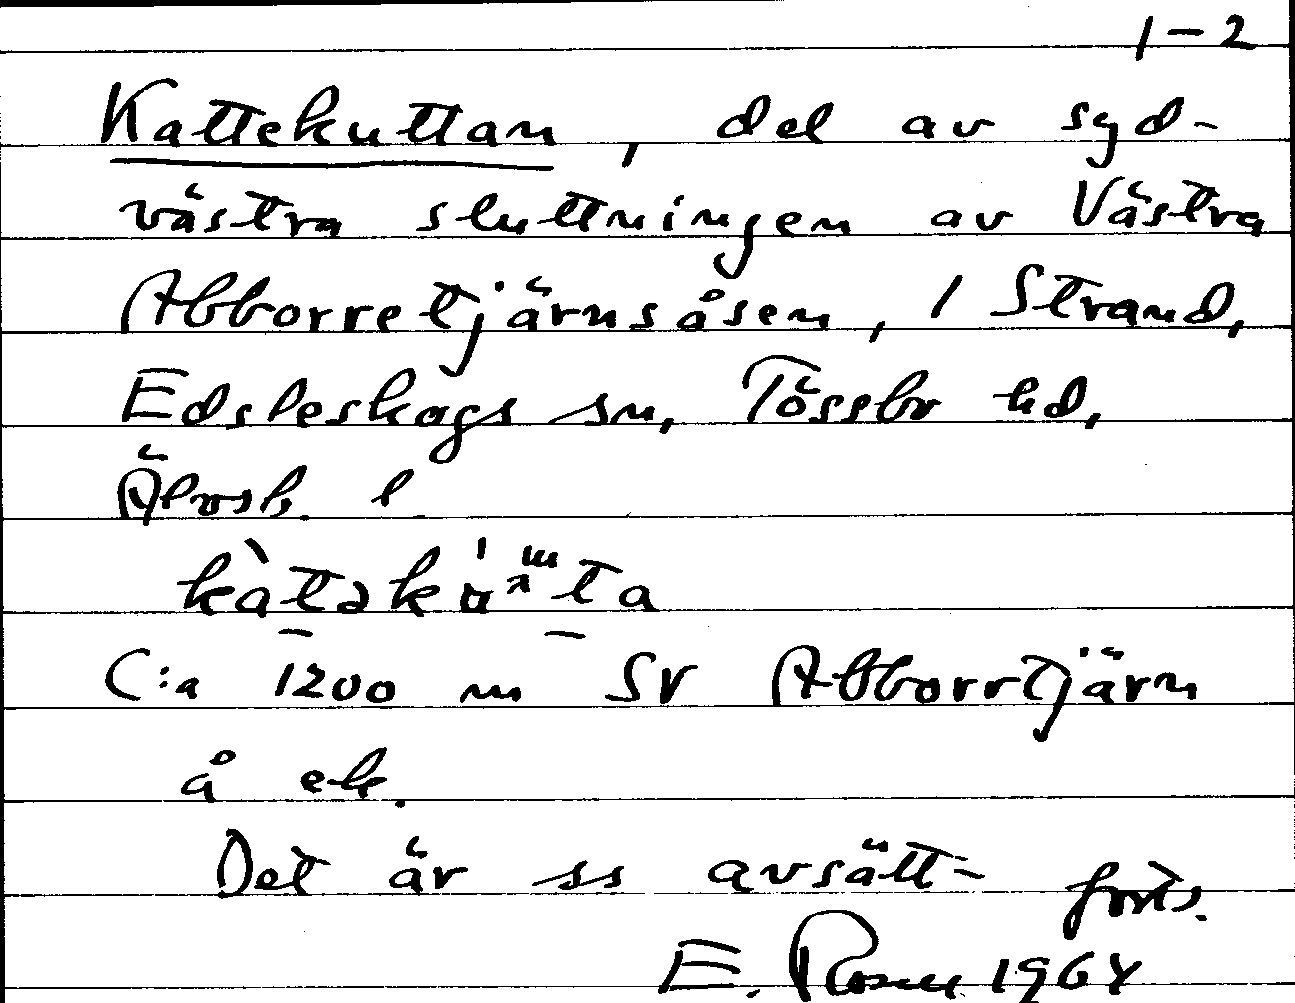 1-2
Kattekuttan, del av syd-
västra sluttningen av Västra
Abborretjärnsåsen, 1 Strand,
Edsleskogs sn, Tössbo hd,
Älvsb. l
C:a 1200 m SV Abborrtjärn
å ek.
Det är ss avsätt- forts.
E. Rosell 1964